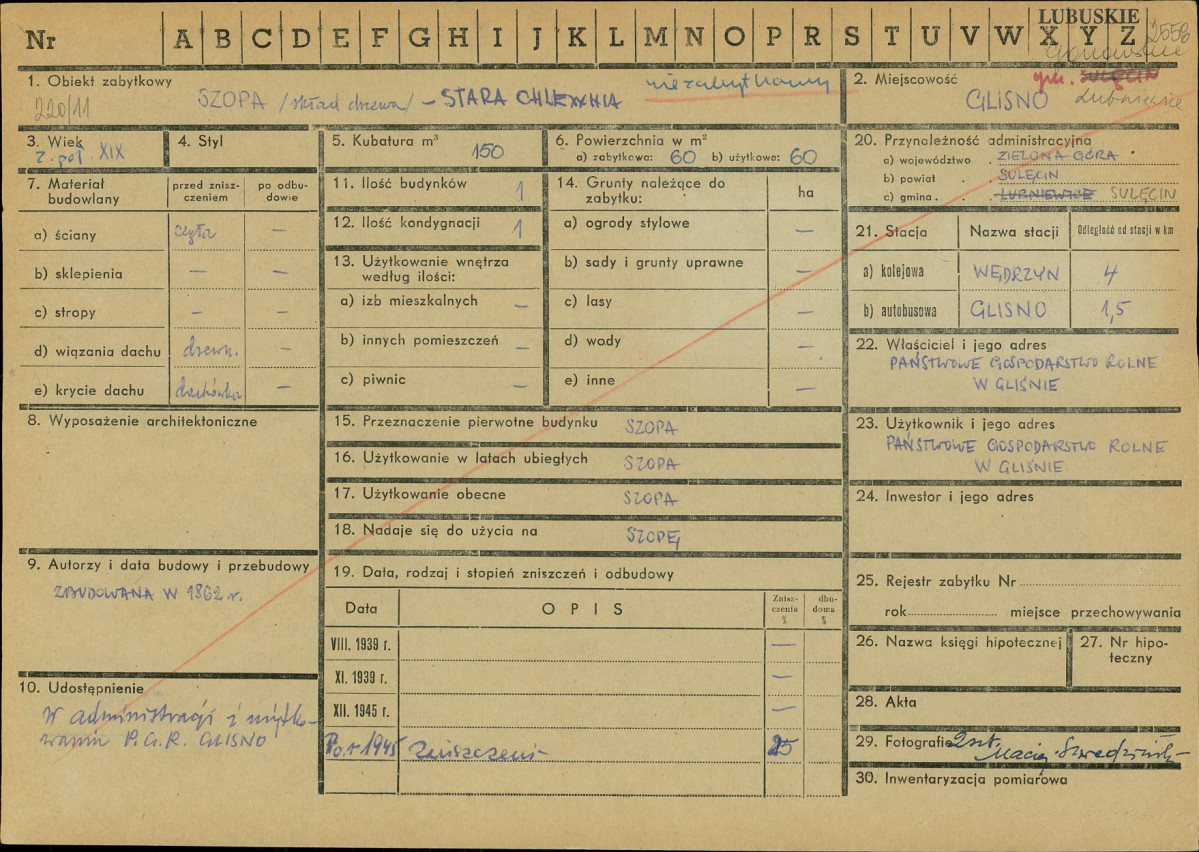 LUBUSKIE
Nr A B C D E F G H I J K L M N O P R S T U V W X Y Z 2558
1. Obiekt zabytkowy
220/11
SZOPA /skład drzewa/ - STARA CHLEWNIA
niezabytkowy
2. Miejscowość
gm. SULĘCIN
GLISNO Lubniewice
3. Wiek
2. poł. XIX
4. Styl
5. Kubatura m³
150
6. Powierzchnia w m²
a) zabytkowa: 60 b) użytkowa: 60
20. Przynależność administracyjna
a) województwo . ZIELONA GÓRA
b) powiat . . SULĘCIN
c) gmina . . LUBNIEWICE SULĘCIN
7. Materiał budowlany
przed znisz-
czeniem
po odbu-
dowie
a) ściany cegła —
b) sklepienia — —
c) stropy — —
d) wiązania dachu drewn. —
e) krycie dachu dachówka —
8. Wyposażenie architektoniczne
9. Autorzy i data budowy i przebudowy
ZBUDOWANA W 1862 r.
10. Udostępnienie
W administracji i użytko-
waniu P.G.R. GLISNO
11. Ilość budynków 1
12. Ilość kondygnacji 1
13. Użytkowanie wnętrza
według ilości:
a) izb mieszkalnych —
b) innych pomieszczeń —
c) piwnic —
14. Grunty należące do
zabytku:
ha
a) ogrody stylowe —
b) sady i grunty uprawne —
c) lasy —
d) wody —
e) inne —
15. Przeznaczenie pierwotne budynku SZOPA
16. Użytkowanie w latach ubiegłych SZOPA
17. Użytkowanie obecne SZOPA
18. Nadaje się do użycia na SZOPĘ
19. Data, rodzaj i stopień zniszczeń i odbudowy
Data OPIS
Znisz-
czenia
%
dbu-
dowa
%
VIII. 1939 r. —
XI. 1939 r. —
XII. 1945 r. —
Po. r 1945 Zniszczeni- 25
21. Stacja Nazwa stacji Odległość od stacji w km
a) kolejowa WĘDRZYN 4
b) autobusowa GLISNO 1,5
22. Właściciel i jego adres
PAŃSTWOWE GOSPODARSTWO ROLNE
W GLIŚNIE
23. Użytkownik i jego adres
PAŃSTWOWE GOSPODARSTWO ROLNE
W GLIŚNIE
24. Inwestor i jego adres
25. Rejestr zabytku Nr
rok miejsce przechowywania
26. Nazwa księgi hipotecznej
27. Nr hipo-
teczny
28. Akta
29. Fotografie 2 szt. Maciej
30. Inwentaryzacja pomiarowa